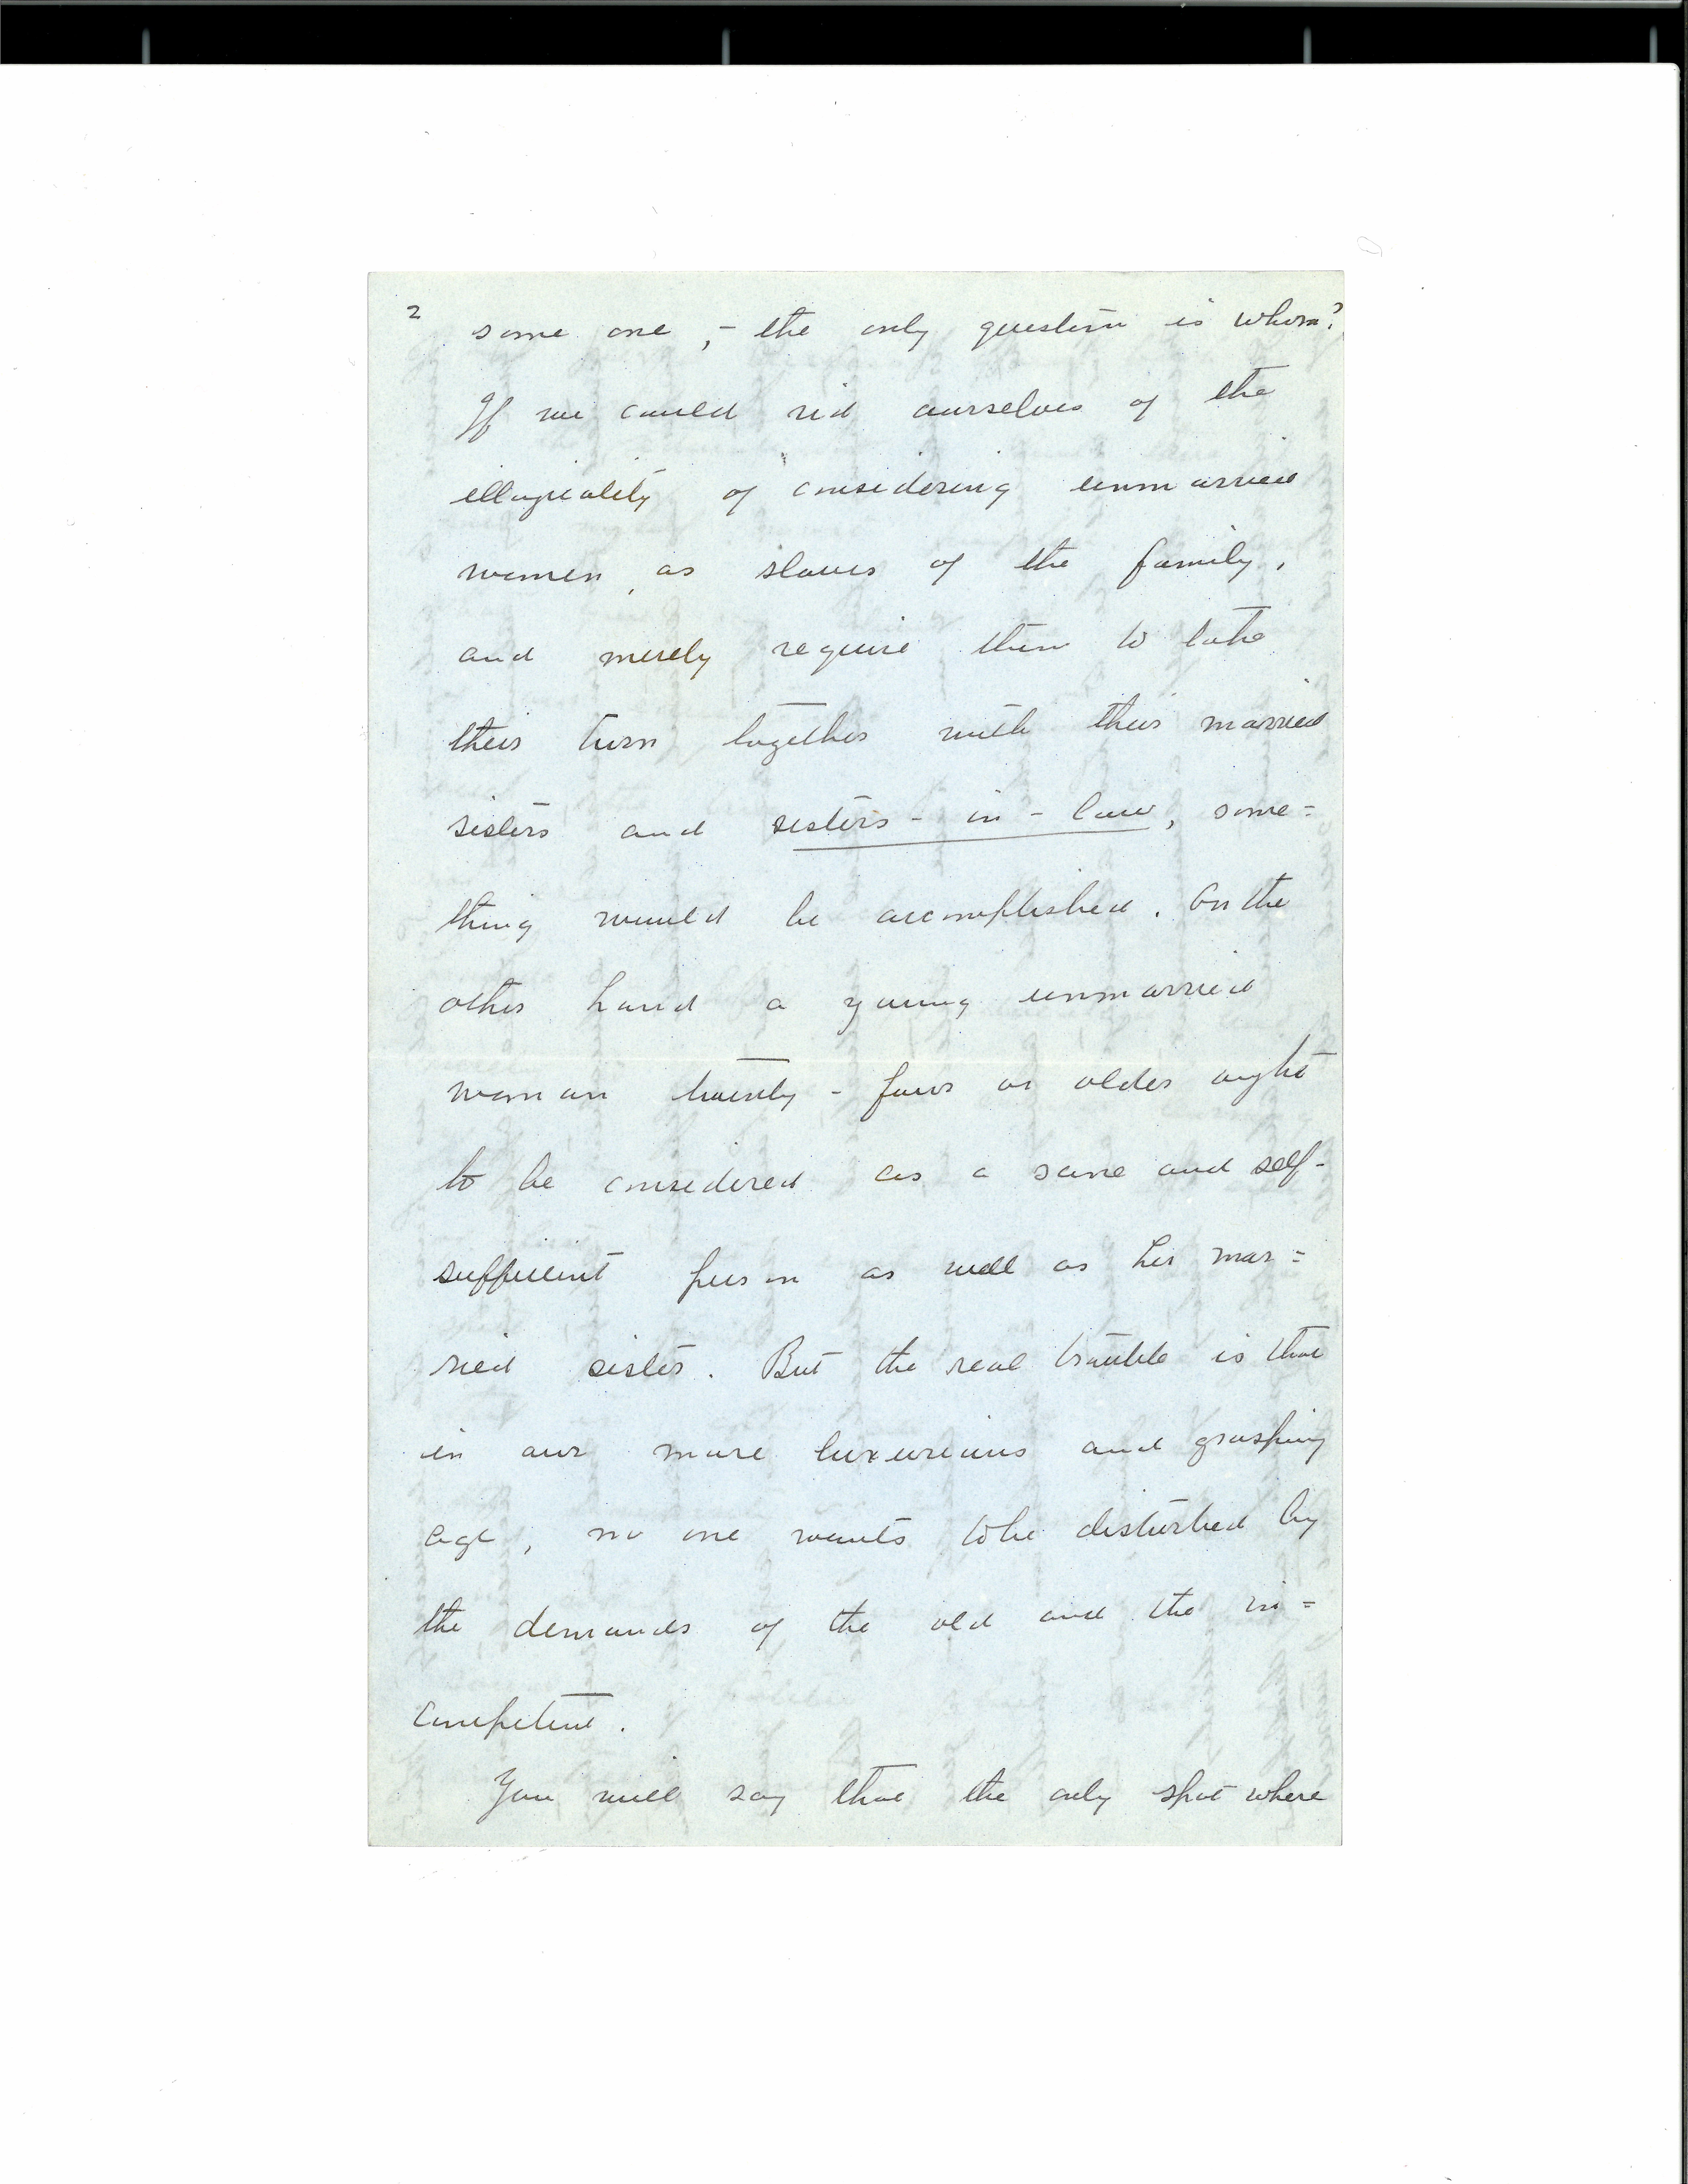 2 some one, - the only question is whom?
If we could rid ourselves of the
illogicality of considering unmarried
women as slaves of the family,
and merely require them to take
their turn together with their married
sisters and sisters-in-law, some=
thing would be accomplished. On the
other hand a young unmarried
woman twenty-four or older ought
to be considered as a sane and self-
sufficient person as well as her mar=
ried sister. But the real trouble is that
in our more luxurious and grasping
age, no one wants to be disturbed by
the demands of the old and the in=
competent.
You will say that the only spot where